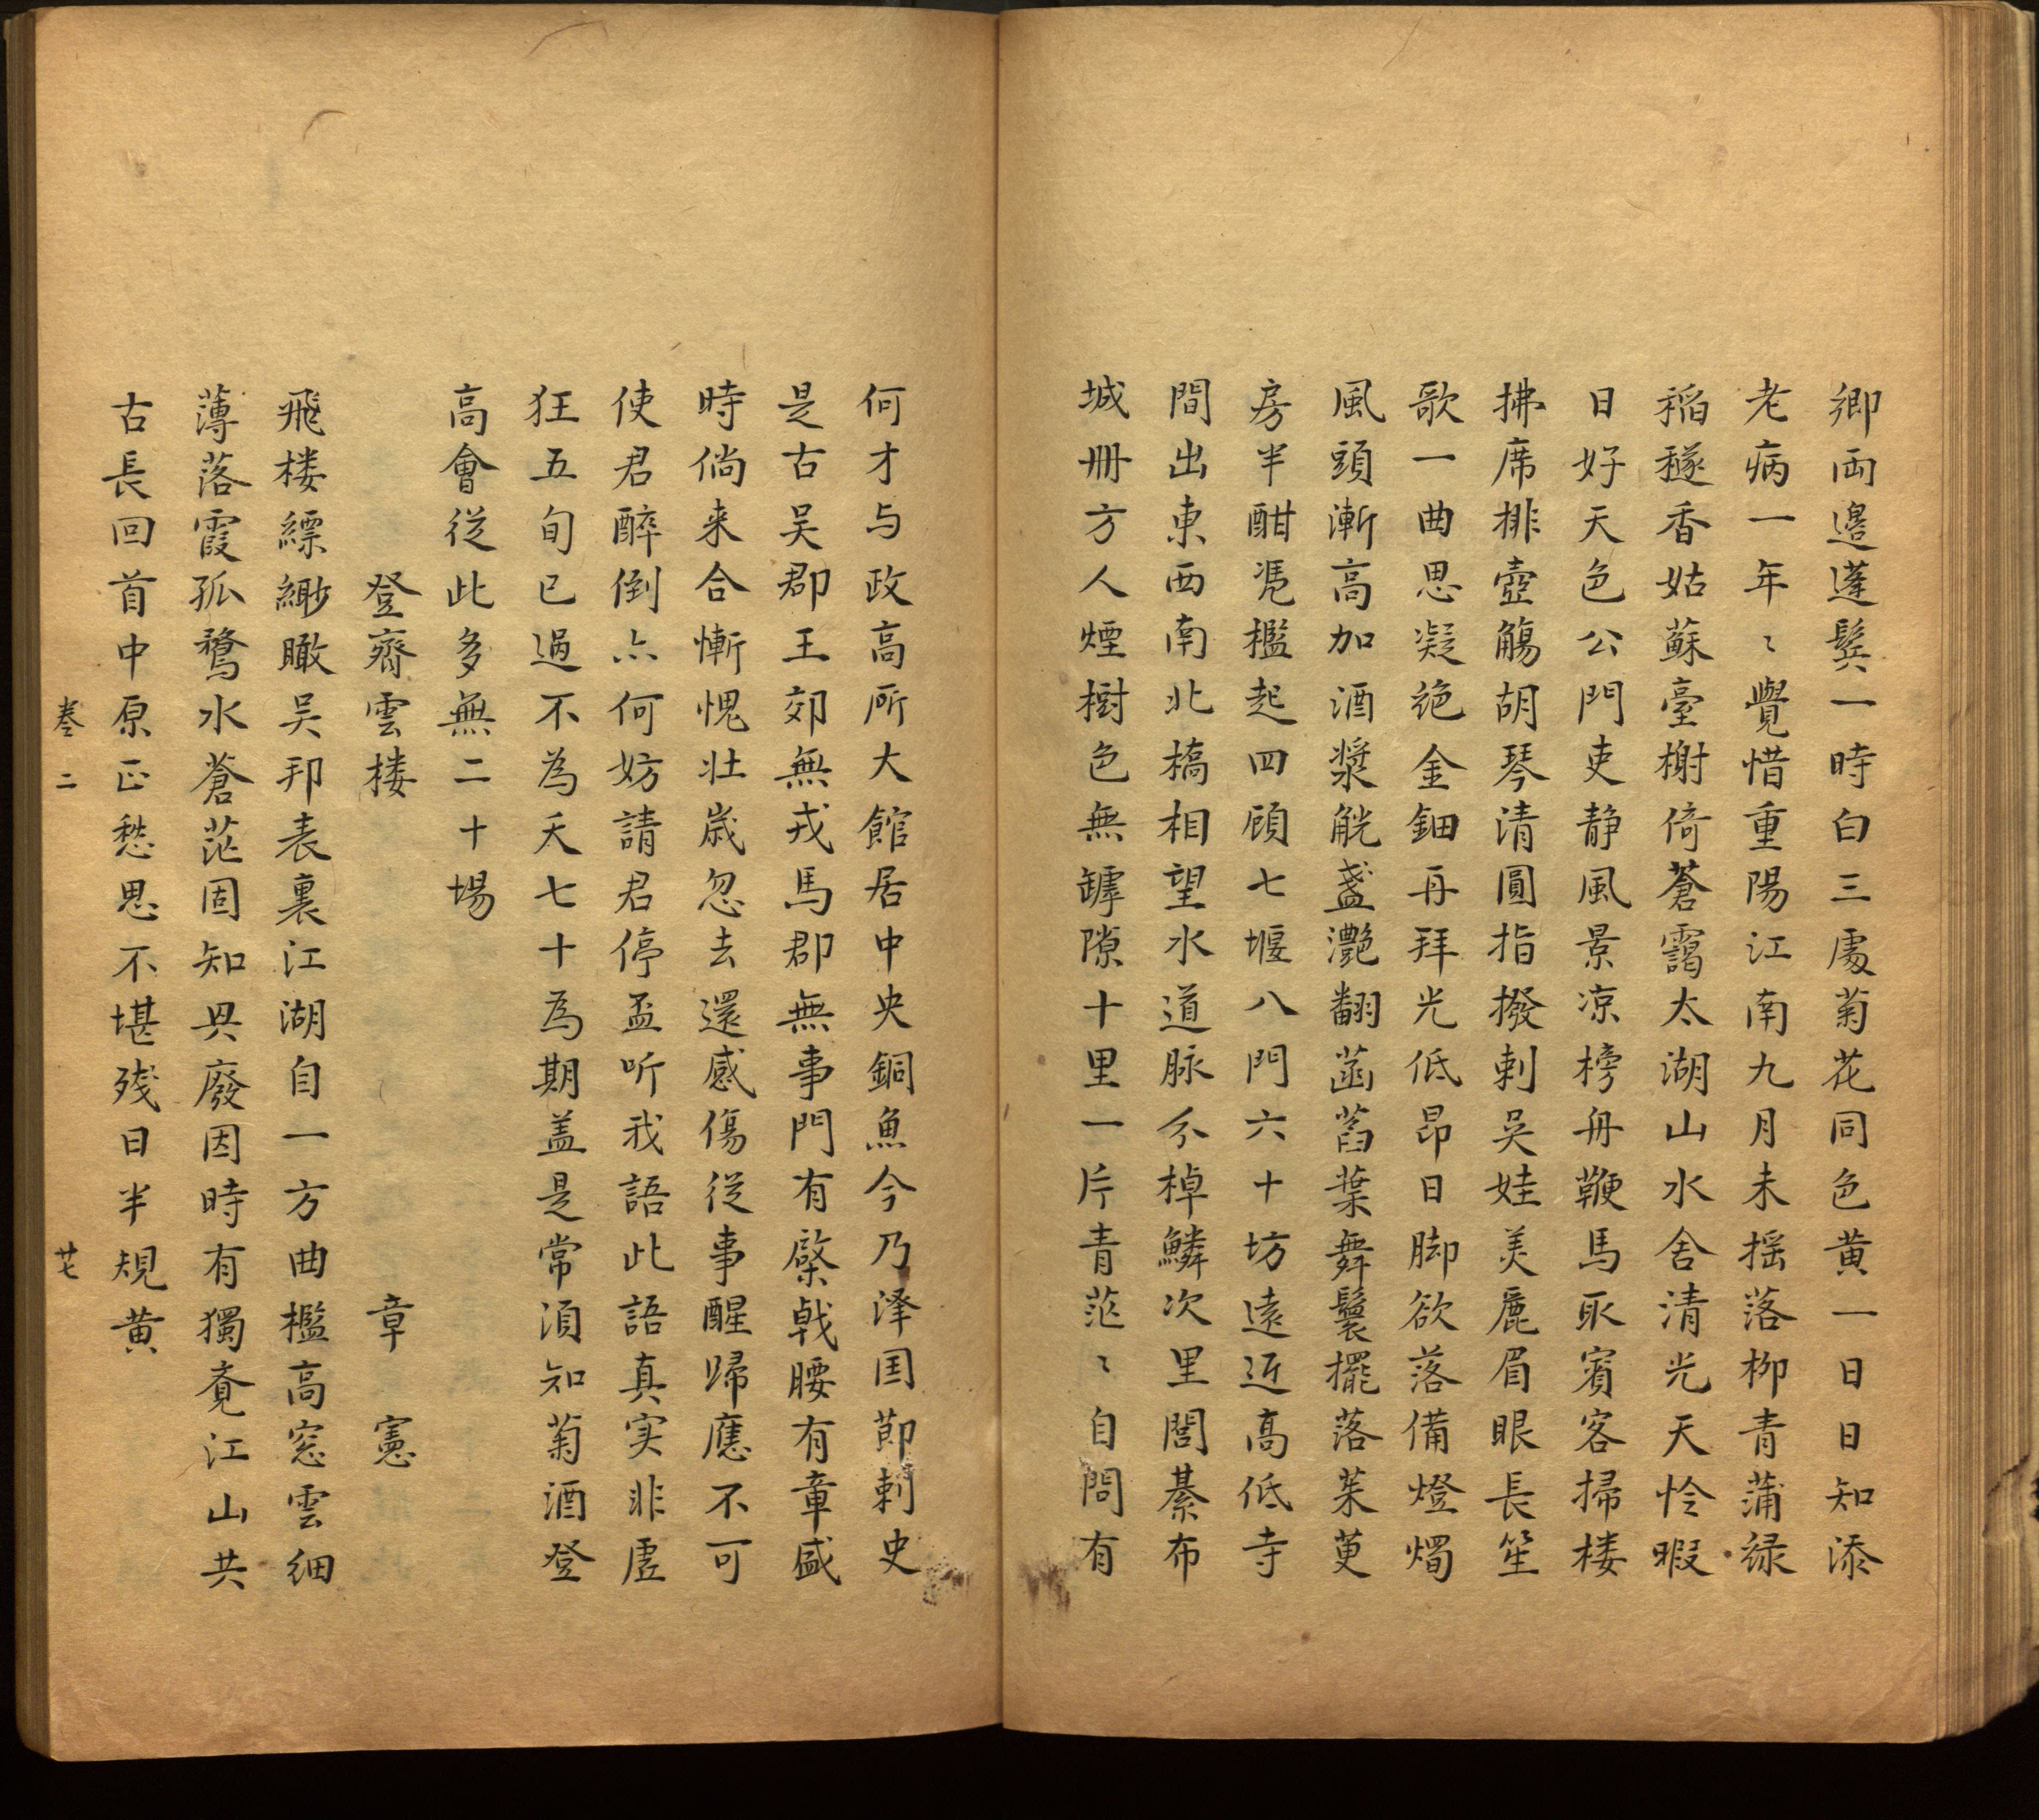 卿両邉蓬鬂一時白三處菊花同色黄一日日知添
老病一年〻覺惜重陽江南九月未揺落栁青蒲緑
稲穟香姑蘇臺榭倚蒼靄太湖山水舎清光天怜暇
日好天色公門吏静風景凉榜舟鞭馬取賓客掃楼
拂席排壺觴胡琴清圓指撥剌吴娃美麗眉眼長笙
歌一曲思凝绝金鈿再拜光低昂日脚欲落備燈燭
風頭漸高加酒漿觥盞灔翻菡萏葉舞鬟擺落茱萸
房半酣凴檻起四顧七堰八門六十坊遠近高低寺
間出東西南北橋相望水道脉分棹鱗次里閭綦布
城冊方人煙樹色無罅隙十里一片青茫〻自問有
何才与政高所大館居中央銅魚今乃泽囯莭刺史
是古吴郡王郊無戎馬郡無事門有棨戟腰有章盛
時倘来合慚愧壮歳忽去還感傷從事醒歸應不可
使君醉倒亦何妨請君停盃听我語此語真实非虚
狂五旬已過不為夭七十為期盖是常須知菊酒登
高會從此多無二十場
登齊雲楼　章憲
飛楼縹緲瞰吴邦表裏江湖自一方曲檻高窓雲细
薄落霞孤鶩水蒼茫固知興廢因時有獨覔江山共
古長回首中原正愁思不堪残日半規黄
巻二　廿七